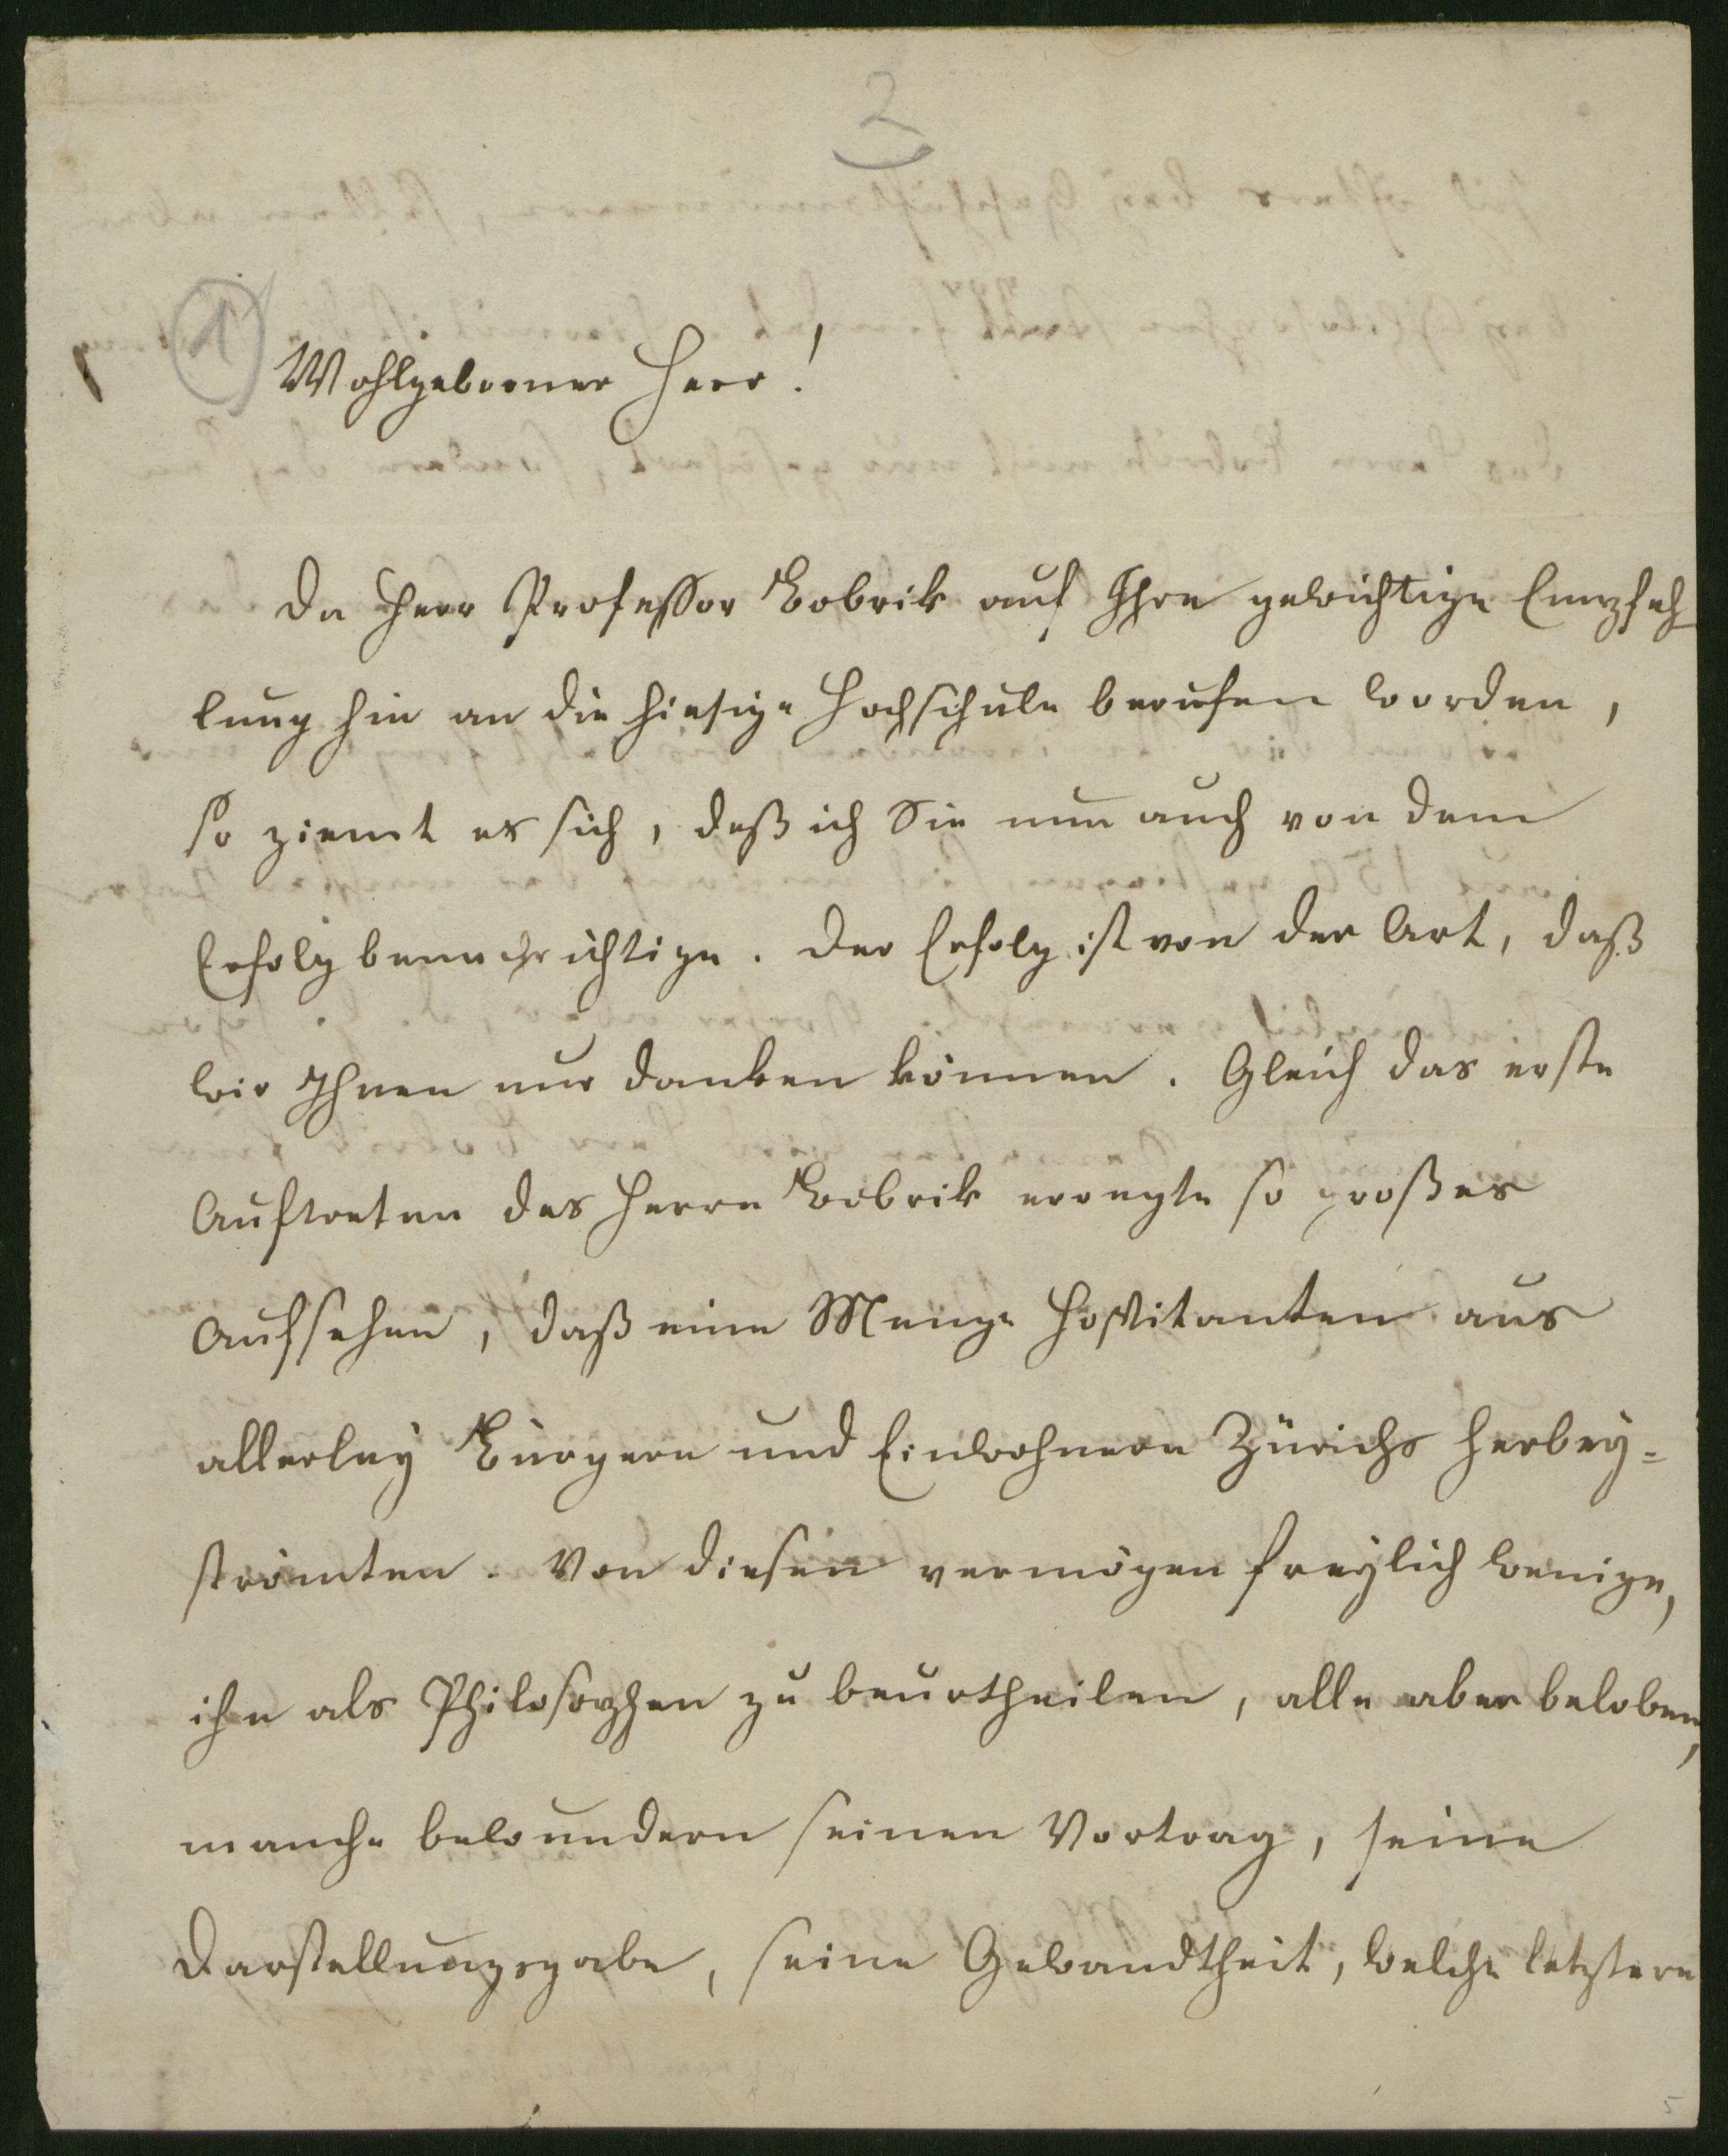 2
1
Wohlgeborner Herr!
Da Herr Professor Bobrik auf Ihre gewichtige Empfeh
lung hin an die hiesige Hochschule berufen worden,
so ziemt es sich, daß ich Sie nun auch von dem
Erfolg benachrichtige. Der Erfolg ist von der Art, daß
wir Ihnen nur danken können. Gleich das erste
Auftreten des Herrn Bobrik erregte so großes
Aufsehen, daß eine Menge Hospitanten aus
allerley Bürgern und Einwohnern Zürichs herbey=
strömten. Von diesen vermögen freylich wenige,
ihn als Philosophen zu beurtheilen, alle aber beloben,
manche bewundern seinen Vortrag, seine
Darstellungsgabe, seine Gewandtheit, welche letztere
5